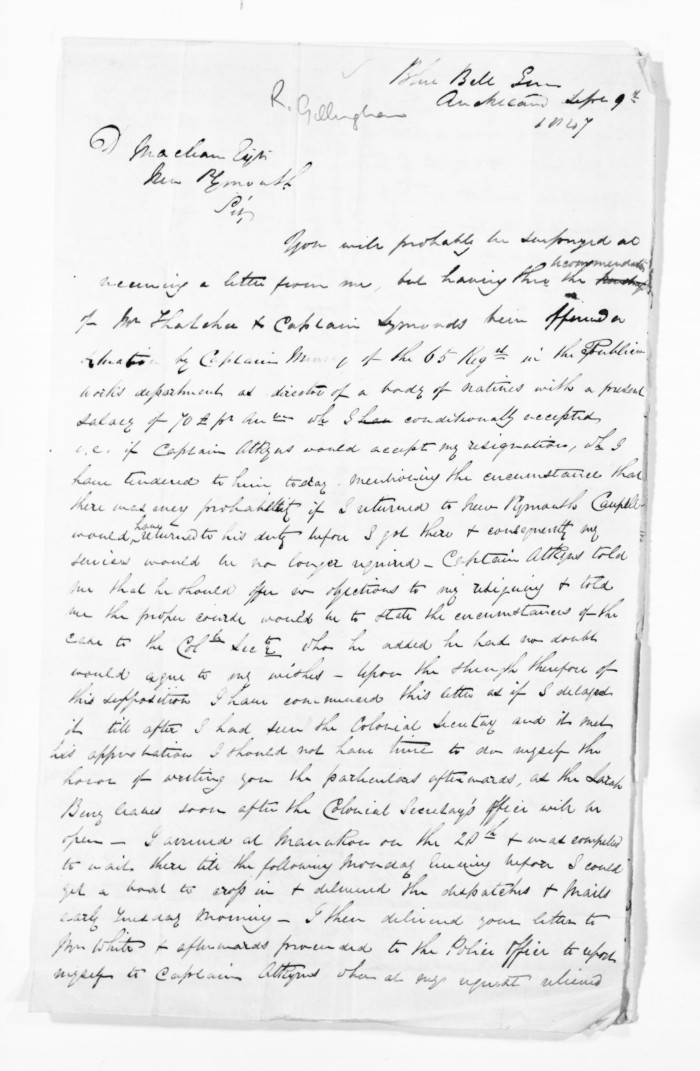 Blue Bell Inn
Auckland Septr 9th
1847
R. Gillingham
D McLean Esqr
New Plymouth
Sir,
You will probably be surprized at
receiving a letter from me, but having thro the recommendation
of Mr Thatcher & Captain Symonds been offered a
situation by Captain of the 65 Regt in the Public
works department as director of a body of natives with a present
salary of 70£ pr Annum wh I have conditionally accepted
i.e. if Captain Atkyns would accept my resignation, wh I
have tendered to him today. mentioning the circumstance that
there was every probability if I returned to New Plymouth Campbell
would have returned to his duty before I got there & consequently my
services would be no longer required – Captain Atkyns told
me that he should offer no objections to my resigning & told
me the proper course would be to state the circumstances of the
case to the Colol Secty who he added he had no doubt
would agree to my wishes – Upon the strength therefore of
this supposition I have commenced this letter as if I delayed
it till after I had seen the Colonial Secretay and it met
his approbation I should not have time to do myself the
honor of writing you the particulars afterwards, as the Sarah
Berry leaves soon after the Colonial Secretay's office will be
open – I arrived at Manukau on the 28th & was compelled
to wait there till the following Monday Evening before I could
get a boat to crop in & delivered the dispatches & Mails
early Tuesday Morning – I then delivered your letter to
Mr White & afterwards proceeded to the Police Office to report
myself to Captain Atkyns who at my request relieved